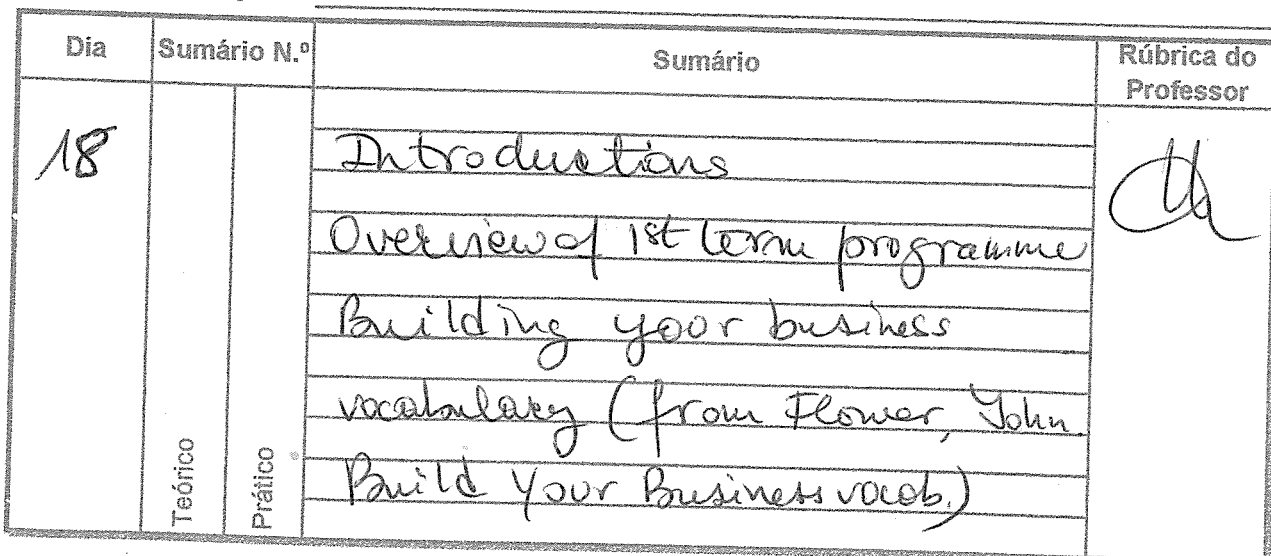 Dia Sumário N.º Sumário Rúbrica do
Professor
18 Introductions
Overview of 1st term programme
Building your business
vocabulary (from Flower, John
Build Your Business vocab.)
Teórico Prático